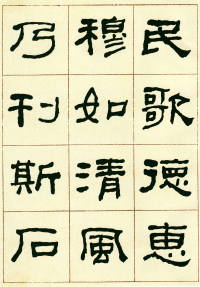 民歌德惠
穆如清風
乃刊斯石